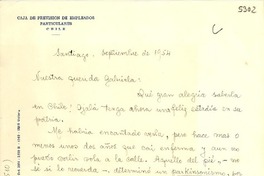 5302
CAJA DE PREVISION DE EMPLEADOS
PARTICULARES
CHILE
Santiago, Septiembre de 1954
Nuestra querida Gabriela:
Qué gran alegría saberla
en Chile! Ojalá tenga ahora una feliz estadía en su
patria.
Me habría encantado verla, pero hace mas o
menos unos dos años que caí enferma y aun no
puedo salir sola a la calle. Aquello del pié, - no
sé si lo recuerda - determinó un parkinsonismo, por